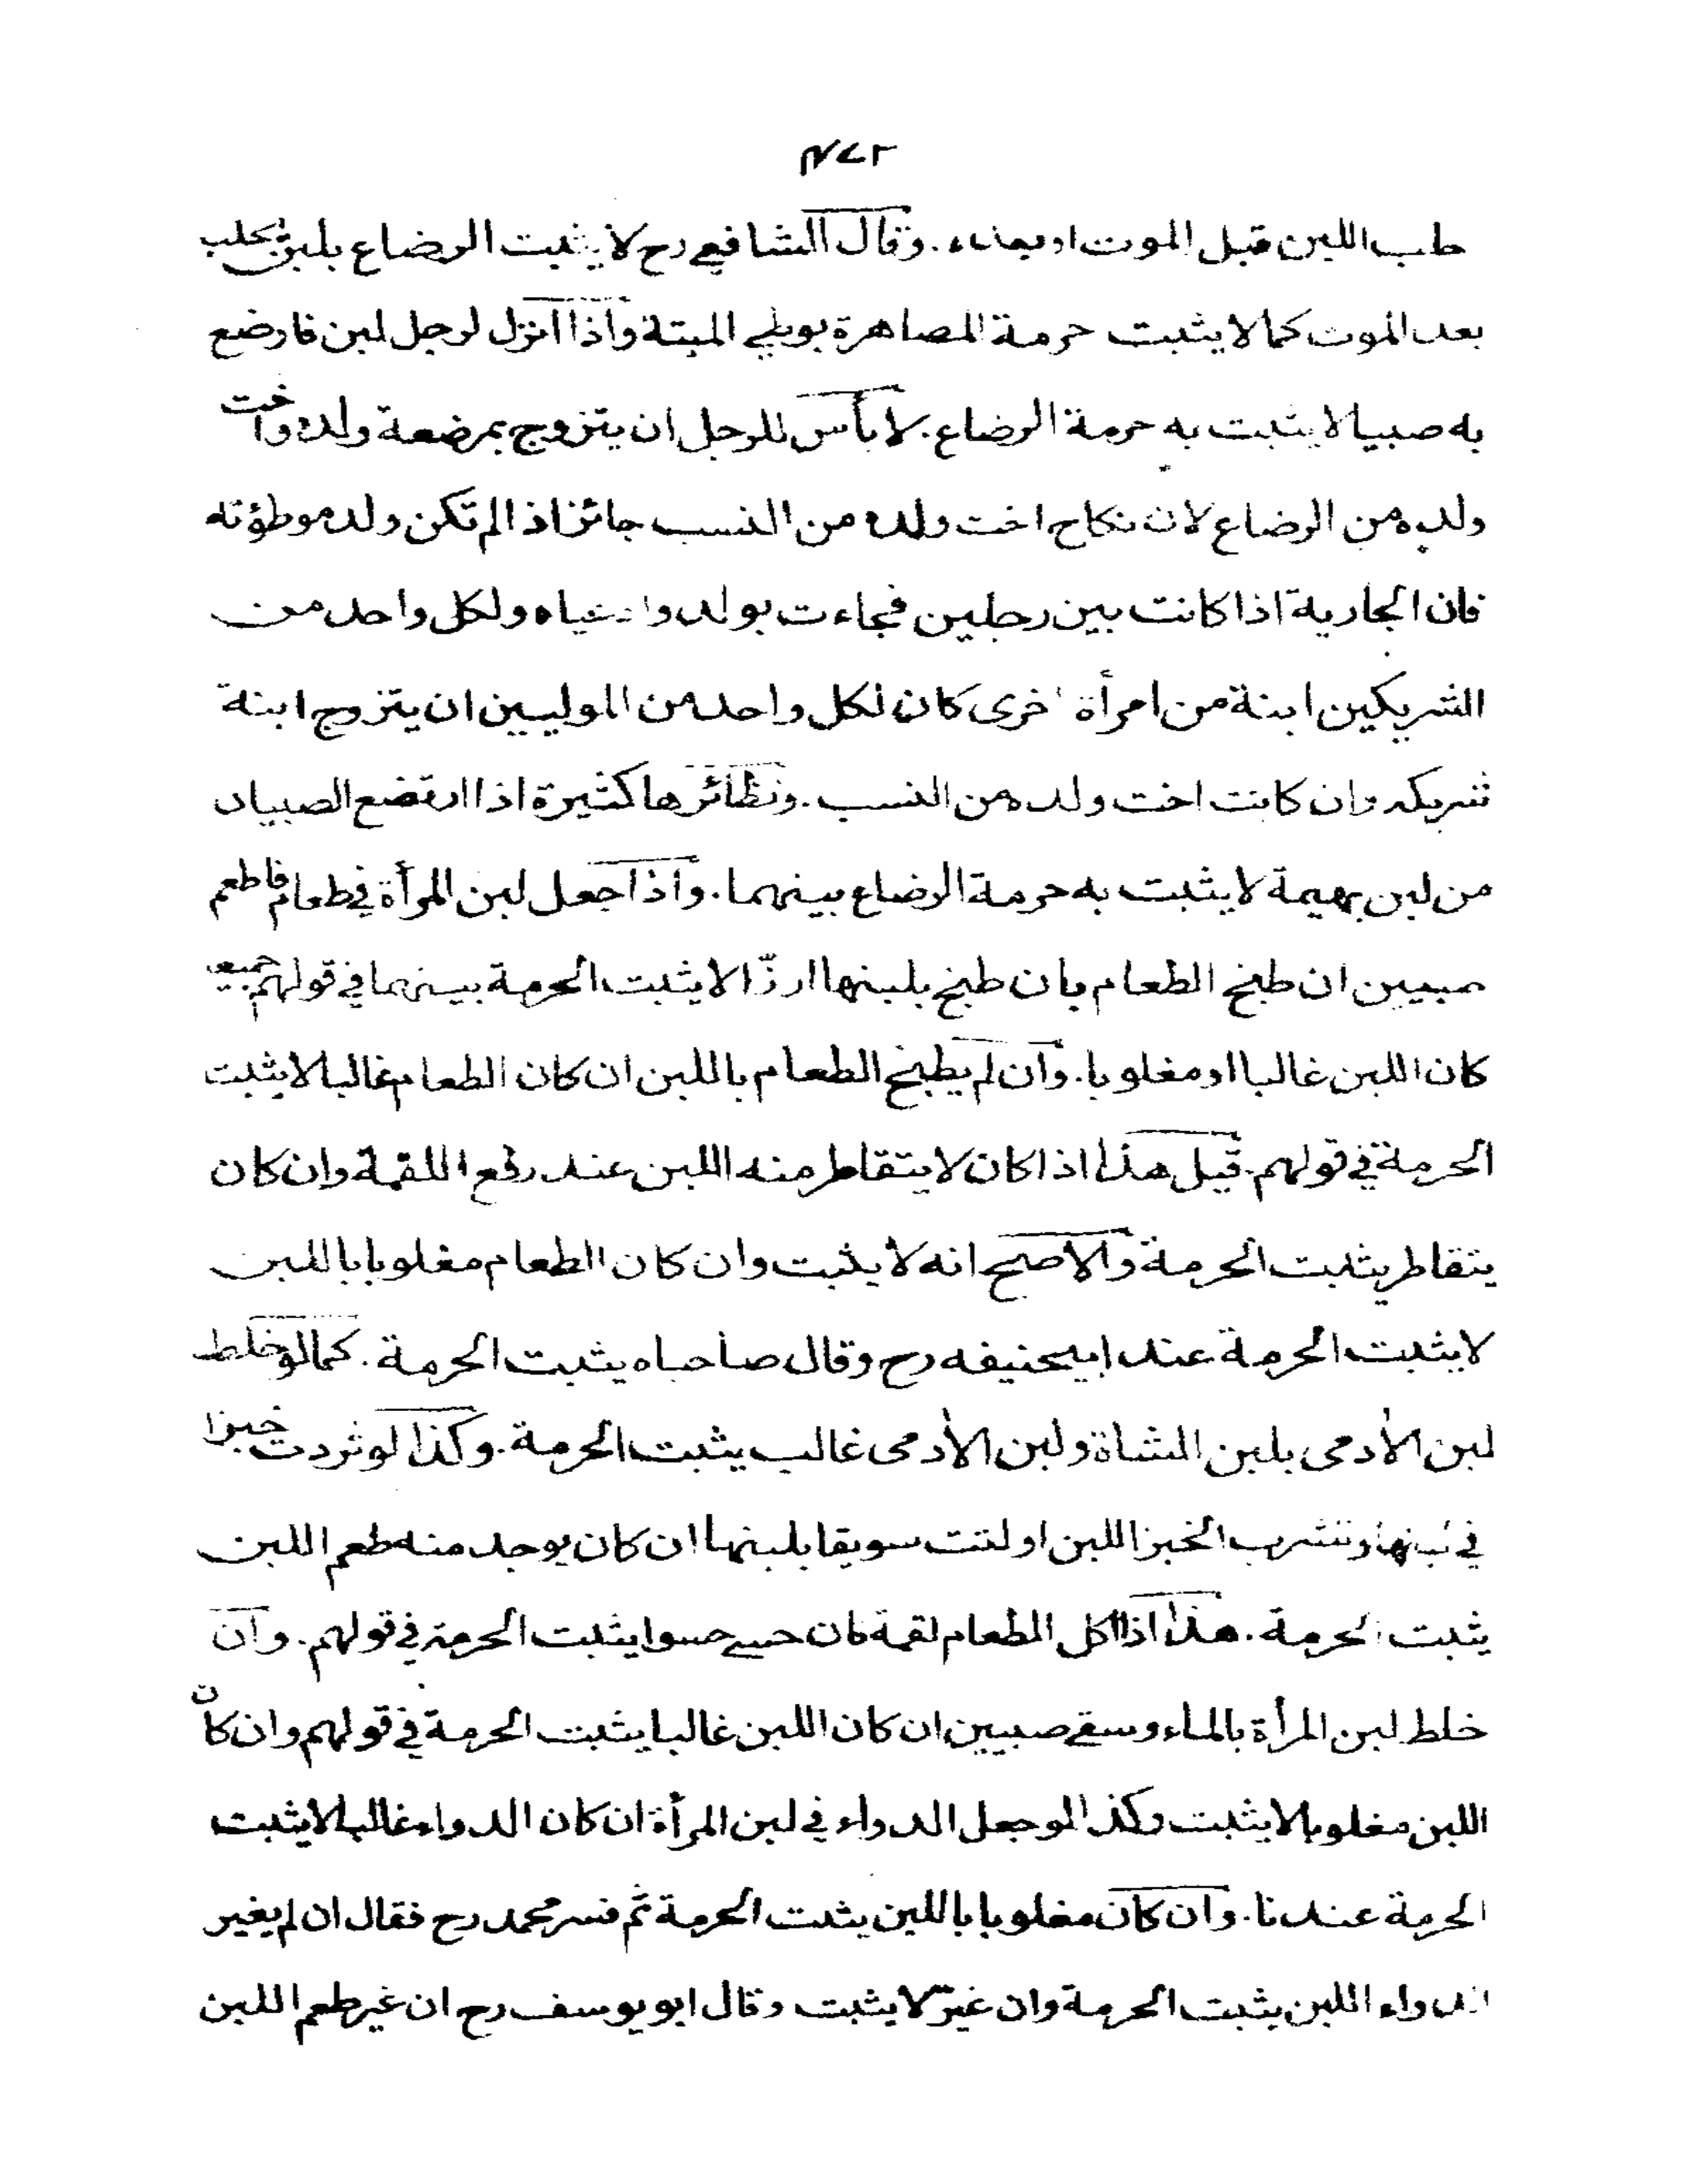 ٤٧٢
طب اللبن قبل الموت او بعده . وقال الشافعي رح لا يثبت الرضاع بلبن يحلب
بعد الموت كما لا يثبت حرمة المصاهرة بوطي الميتة واذا انزل لرجل لبن فارضع
به صبيا لا يثبت به حرمة الرضاع . لا بأس للرجل ان يتزوج بمرضعة ولده واخت
ولده من الرضاع لان نكاح اخت ولده من النسب جائز اذا لم تكن ولد موطؤته
فان الجارية اذا كانت بين رجلين فجاءت بولد وادعياه ولكل واحد من
الشريكين ابنة من امرأة اخرى كان لكل واحد من الموليين ان يتزوج ابنة
شريكه وان كانت اخت ولده من النسب . ونظائرها كثيرة اذا ارتضع الصبيان
من لبن بهيمة لا يثبت به حرمة الرضاع بينهما . واذا جعل لبن المرأة في طعام فاطعم
صبيين ان طبخ الطعام بان طبخ بلبنها ارزّا لا يثبت الحرمة بينهما في قولهم جميعا
كان اللبن غالبا او مغلوبا . وان لم يطبخ الطعام باللبن ان كان الطعام غالبا لا يثبت
الحرمة في قولهم . قيل هذا اذا كان لا يتقاطر منه اللبن عند رفع اللقمة وان كان
يتقاطر يثبت الحرمة والاصح انه لا يثبت وان كان الطعام مغلوبا باللبن
لا يثبت الحرمة عند ابيحنيفه رح وقال صاحباه يثبت الحرمة . كما لو خلط
لبن الأدمى بلبن الشاة ولبن الأدمى غالب يثبت الحرمة . وكذا لو ثردت خبزا
في لبنها وتشرب الخبز اللبن او لتت سويقا بلبنها ان كان يوجد منه طعم اللبن
يثبت الحرمة . هذا اذا اكل الطعام لقمة فان حسى حسوا يثبت الحرمة في قولهم . وان
خلط لبن المرأة بالماء وسقى صبيين ان كان اللبن غالبا يثبت الحرمة في قولهم وان كان
اللبن مغلوبا لا يثبت وكذا لو جعل الدواء في لبن المرأة ان كان الدواء غالبا لا يثبت
الحرمة عندنا . وان كان مغلوبا باللبن يثبت الحرمة ثم فسر محمد رح فقال ان لم يغير
الدواء اللبن يثبت الحرمة وان غيّر لا يثبت وقال ابو يوسف رح ان غير طعم اللبن